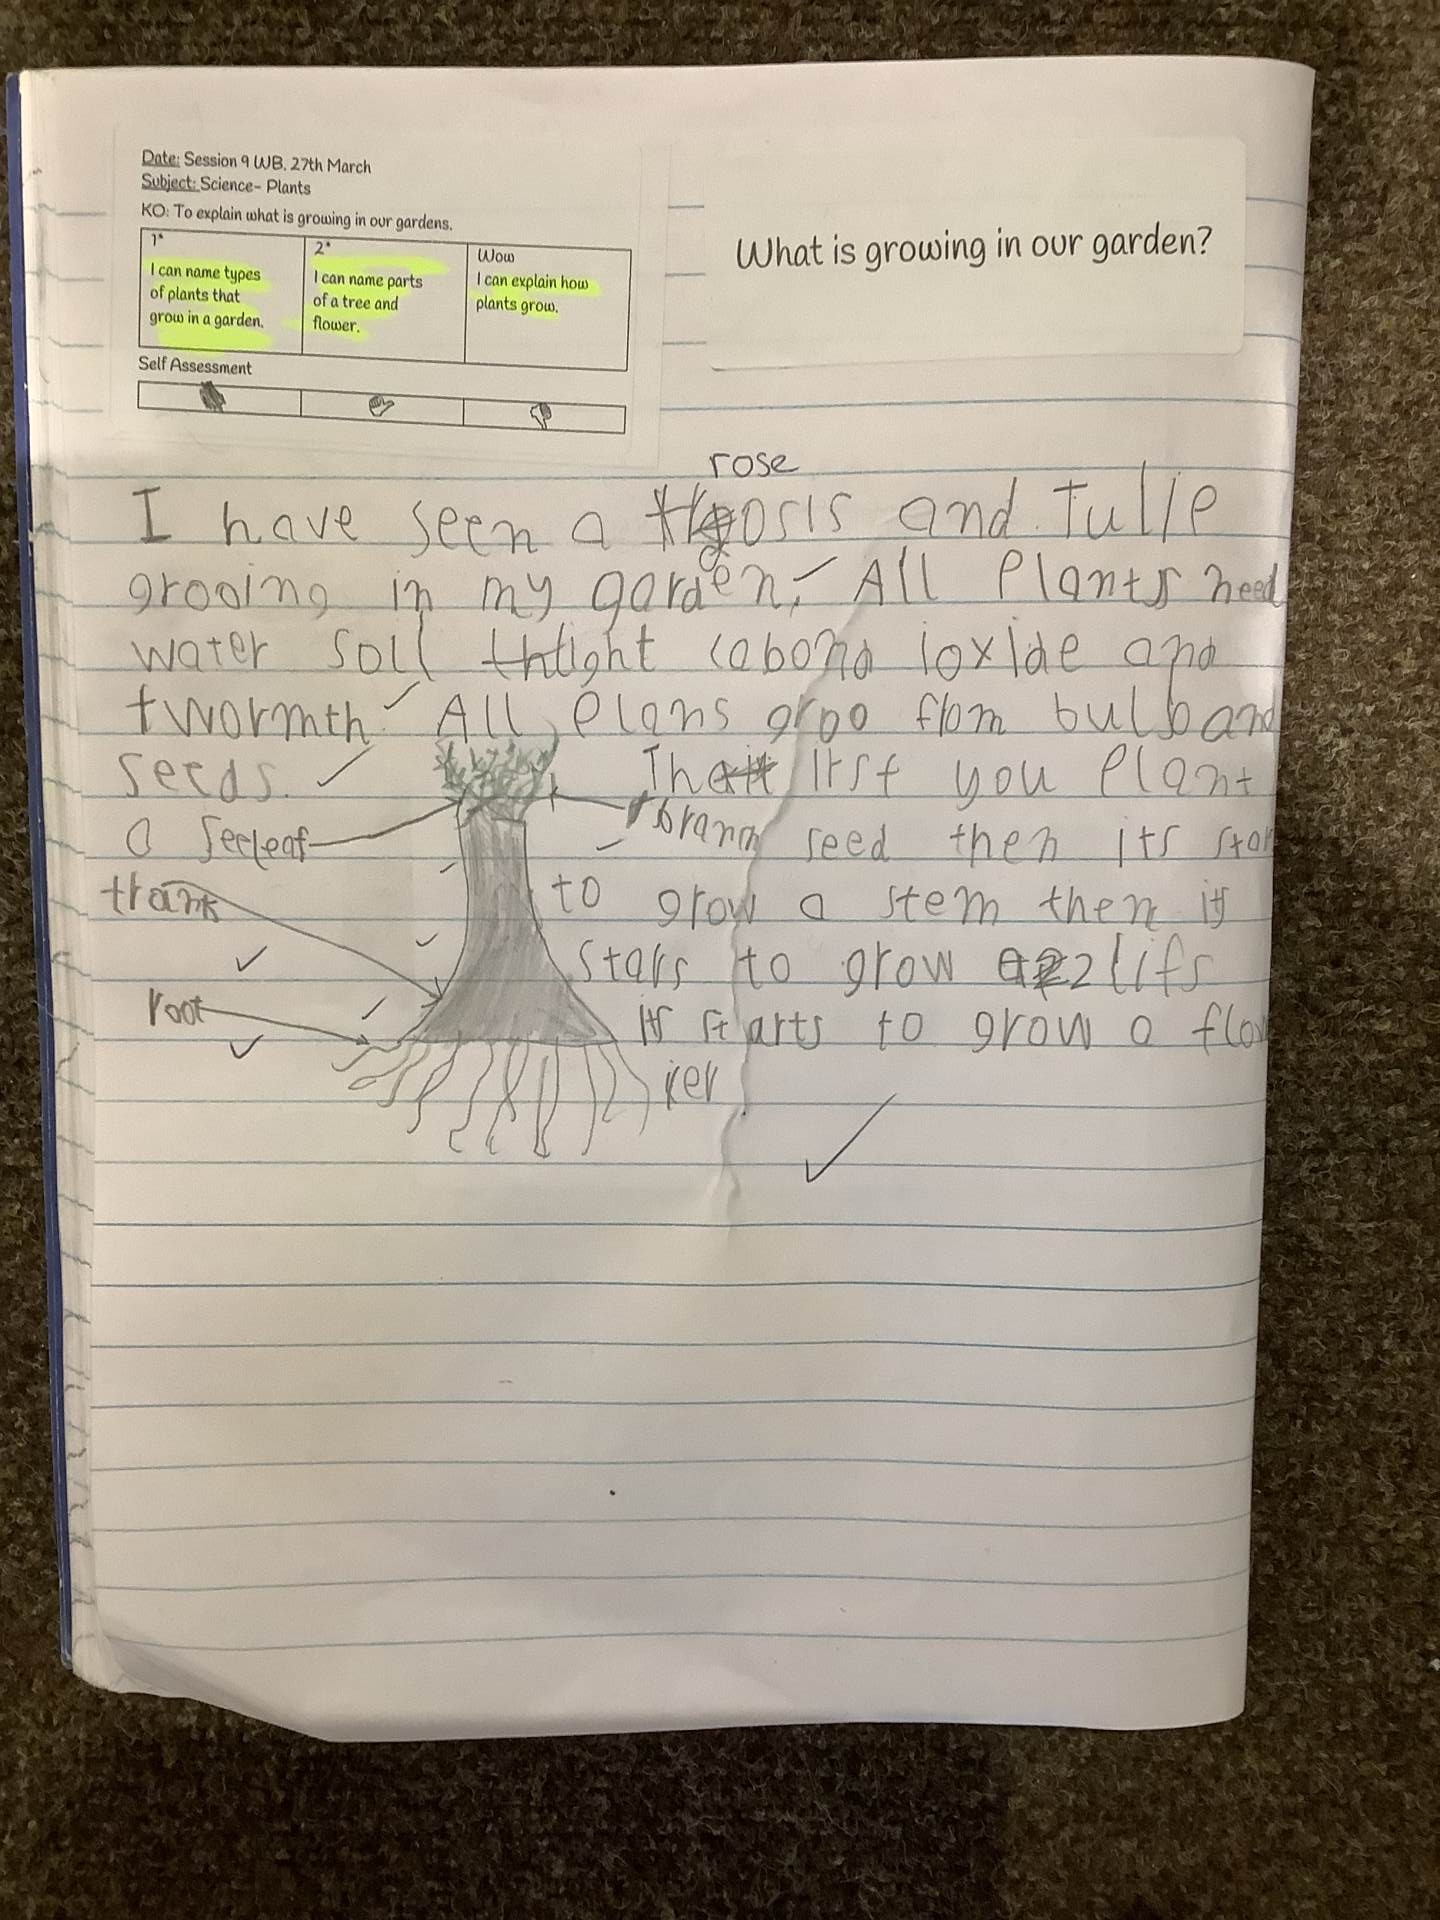 Date: Session 9 WB. 27th March
Subject: Science- Plants
KO: To explain what is growing in our gardens.
1*
I can name types
of plants that
grow in a garden.
2*
I can name parts
of a tree and
flower.
Wow
I can explain how
plants grow.
Self Assessment
What is growing in our garden?
rose
I have seen a and Tulip
grooing in my garden. All Plants need
water soil light cabond ioxide and
wormth All Plans groo from bulb and
seeds. The irst you Plant
a see seed then its star
leaf
branch
trank
to grow a stem then it
stars to grow 2 lifs
root
it starts to grow a flow
rer